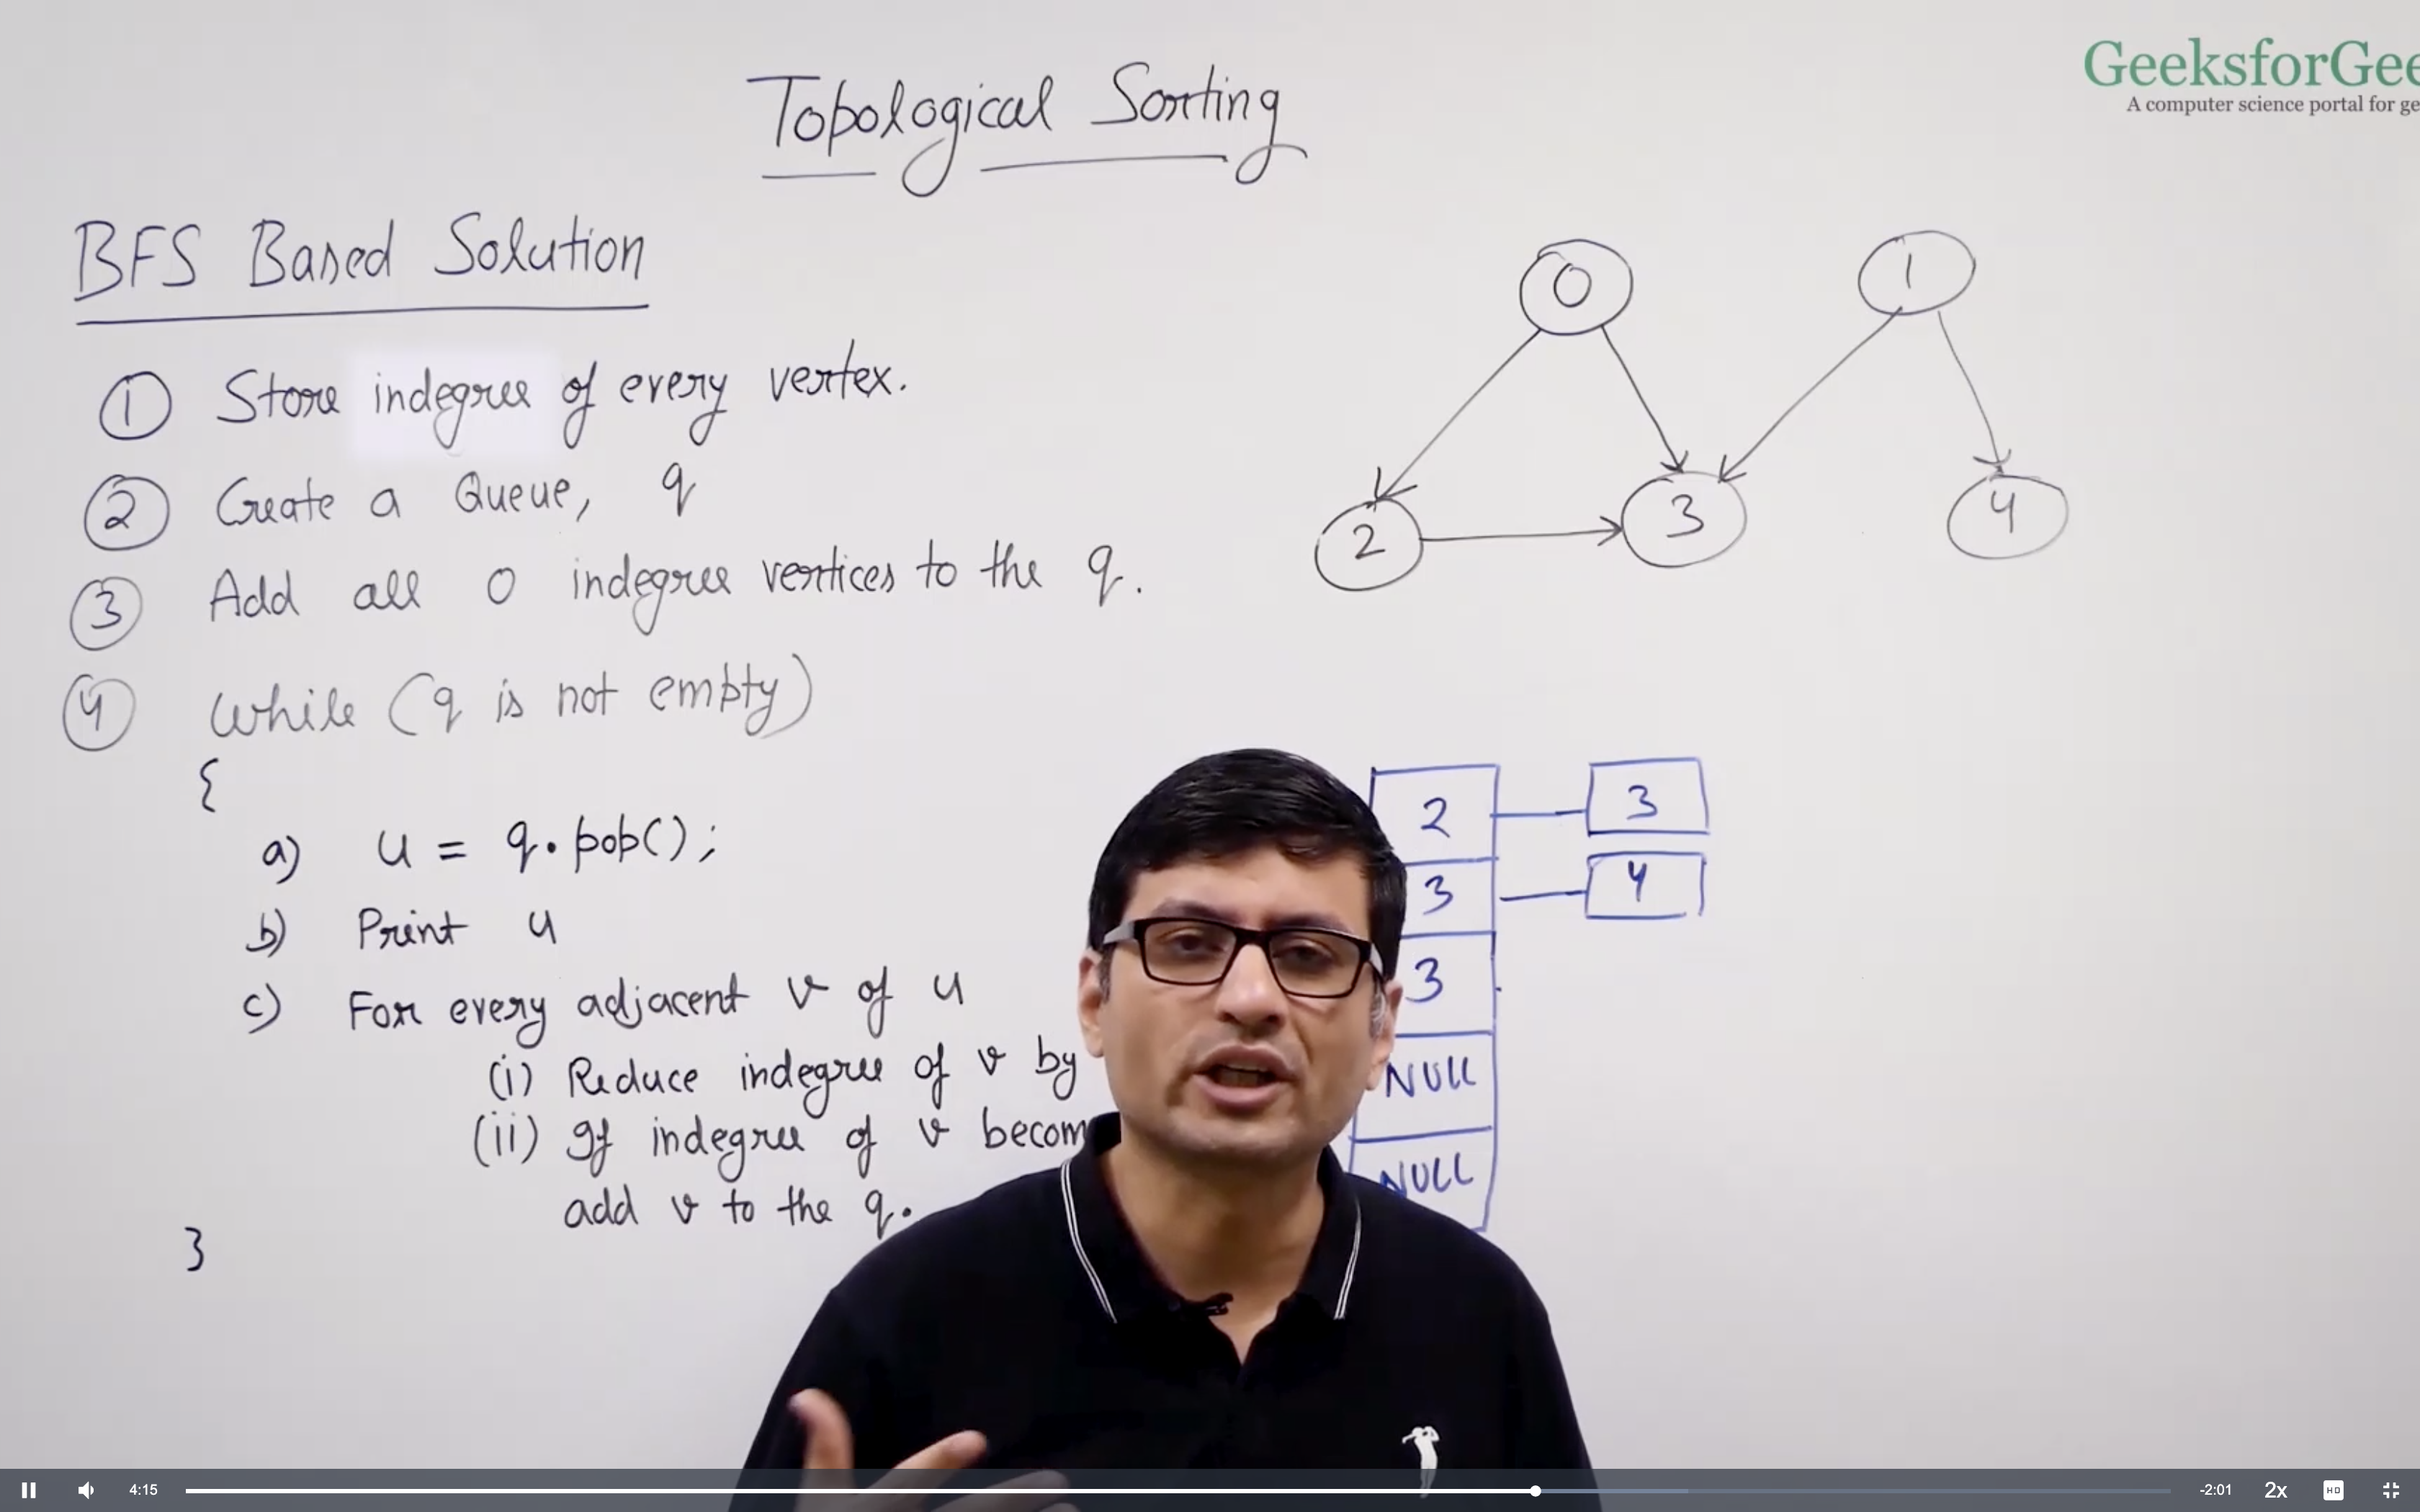 Topological Sorting
GeeksforGee
A computer science portal for ge
BFS Based Solution
① Store indegree of every vertex.
② Create a Queue, q
③ Add all 0 indegree vertices to the q.
④ While (q is not empty)
{
a) u = q.pop();
b) Print u
c) For every adjacent v of u
(i) Reduce indegree of v by
(ii) If indegree of v becom
add v to the q.
}
0
1
2
3
4
2 3
3 4
3
NULL
NULL
4:15
-2:01
2x
HD